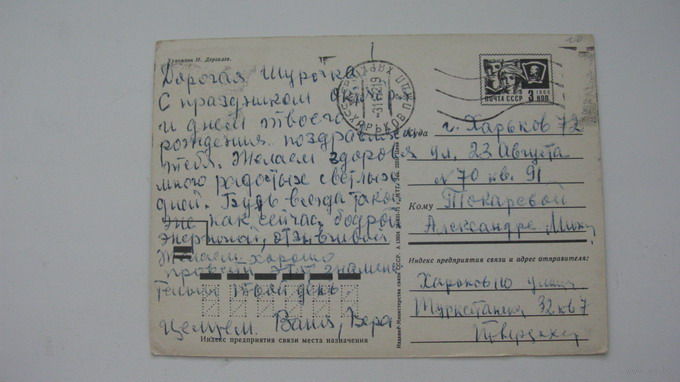 Художник И. Дергилев.
Дорогая Шурочка
С праздником октября
и днем твоего
рождения поздравляем
тебя. Желаем здоровья
много радостых светлых
дней. Будь всегда такой
же как сейчас, бодрой
энергичной, отзывчивой
Желаем хорошо
провести этот знамена
тельный твой день
Целуем. Ваня, Вера
Индекс предприятия связи места назначения
ПОЧТА СССР 3 КОП
1966
ХАРЬКОВ
Куда г. Харьков 72
ул. 23 Августа
№ 70 кв. 91
Кому Токаревой
Александре Мих
Индекс предприятия связи и адрес отправителя:
Харьков 10 улица
Туркестанская 32 кв 7
Издание Министерства связи СССР.